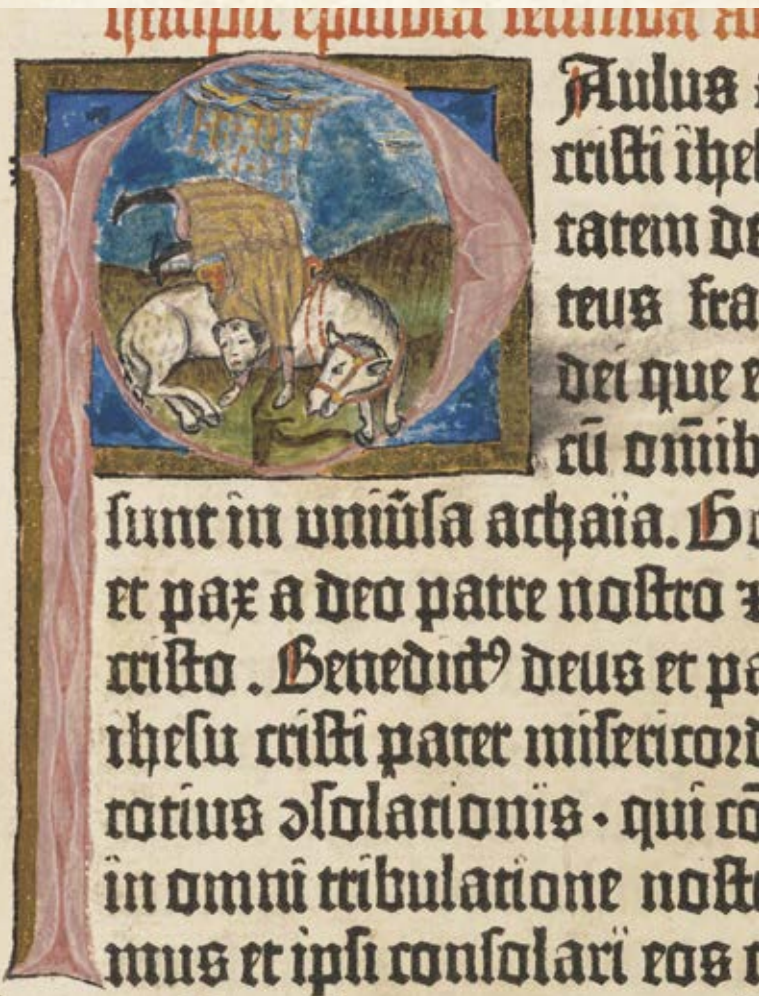 Incipit epistola secunda a
PAulus
cristi ihe
tatem de
teus fra
dei que e
cū om̄ib
sunt in uniūsa achaïa. G
et pax a deo patre nostro ⁊
cristo. Benedictꝰ deus et pa
ihesu cristi pater misericord
totius ↄsolationis · qui cō
in omni tribulatione nost
mus et ipsi consolari eos